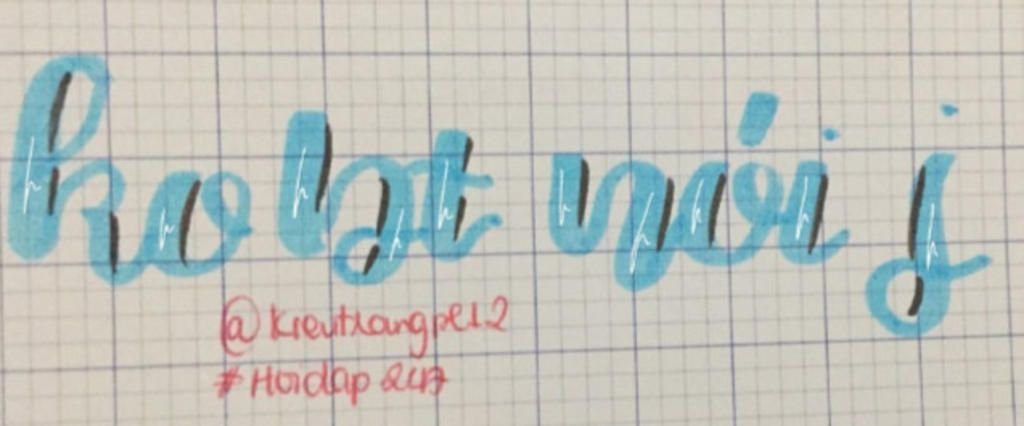 ko bt nói j
@kieutrangpe12
#Hoidap247